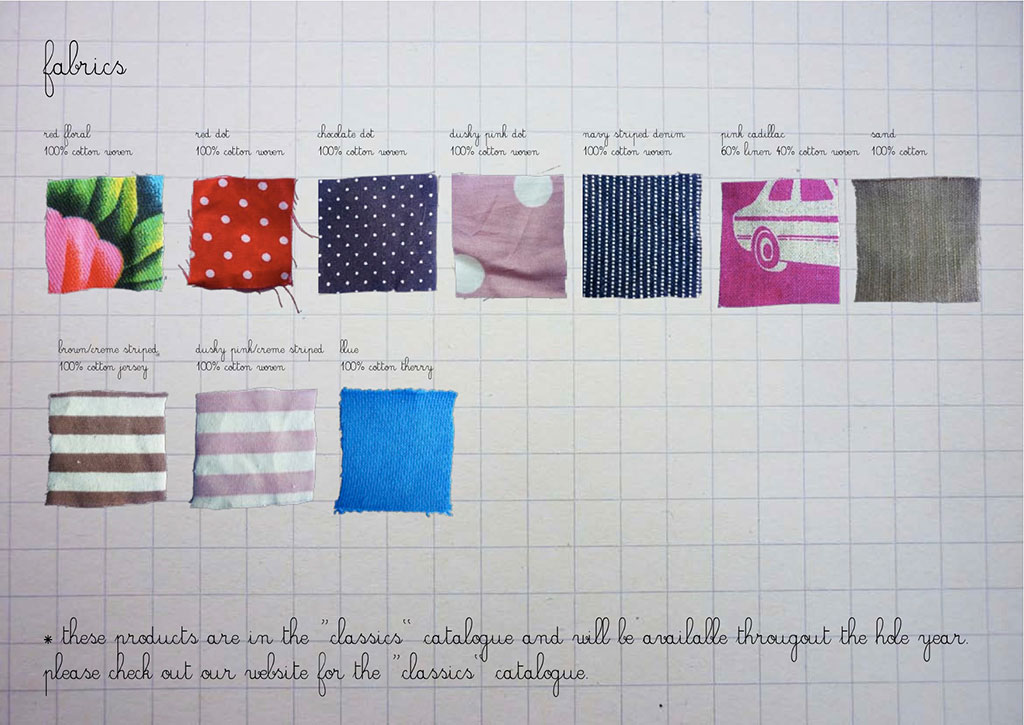 fabrics
red floral
100% cotton woven
red dot
100% cotton woven
chocolate dot
100% cotton woven
dusky pink dot
100% cotton woven
navy striped denim
100% cotton woven
pink cadillac
60% linen 40% cotton woven
sand
100% cotton
brown/creme striped*
100% cotton jersey
dusky pink/creme striped
100% cotton woven
blue
100% cotton therry
* these products are in the "classics" catalogue and will be available througout the hole year.
please check out our website for the "classics" catalogue.